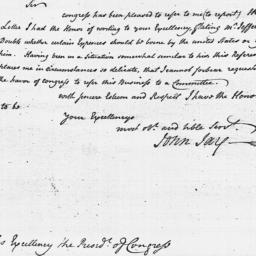 Sir
congress has been pleased to refer to me to report, the
Letter I had the Honor of writing to your Excellency, stating Mr. Jeffer
Doubts whether certain Expences should be borne by the united States or
him. Having been in a Situation somewhat similar to him this Refere
places me in circumstances so delicate, that I cannot forbear request
the favor of congress to refer this Business to a Committee.
with sincere Esteem and Respect I have the Hono
to be
Your Excellency's
most Obt. and hble Servt.
John Jay
s Excellency the Presdt. of Congress